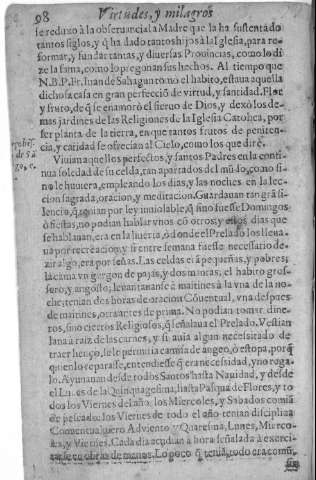 98 Virtudes, y milagros
se reduzo à la obseruancia la Madre que la ha sustentado
tantos siglos, y q̃ ha dado tantos hijos à la Iglesia, para re-
formar, y fundar tantas, y diuersas Prouincias, como lo di-
ze la fama, como lo preguntan sus hechos. Al tiempo que
N.B.P. Fr. Iuan de Sahagun tomò el habito, estaua aquella
dichosa casa en gran perfecciõ de virtud, y santidad. Flor
y fruto, de q̃ se enamorò el sieruo de Dios, y dexò los de-
mas jardines de las Religiones de la Iglesia Catolica, por
ser planta de la tierra, en que tantos frutos de peniten-
cia, y caridad se ofrecian al Cielo, como los que diré.
Viuian aquellos perfectos, y santos Padres en la conti-
nua soledad de su celda, tan apartados del mũdo, como si
no le huuiera, empleando los dias, y las noches en la lec-
cion sagrada, oracion, y meditacion. Guardauan tan grã si-
lencio, q̃ tenian por ley inuiolable, q̃ sino fuesse Domingos
ò fiestas, no podian hablar vnos cõ otros, y ellos dias que
se hablauan, era en la huerta, ò donde el Prelado los lleua-
ua por recreacion, y si entre semana fuesse necessario de-
zir algo, era por señas. Las celdas erã pequeñas, y pobres;
la cama vn gergon de pajas, y dos mantas; el habito gros-
sero, y angosto; leuantauanse à maitines à la vna de la no-
che; tenian dos horas de oracion Cõuentual, vna despues
de maitines, otra antes de prima. No podian tomar dine-
ros, sino ciertos Religiosos, q̃ señalaua el Prelado. Vestian
lana à raiz de las carnes, y si auia algun necessitado de
traer lienço, se le permitia camisa de angeo, ò estopa, porq̃
quien lo reparasse, entendiesse q̃ era necessidad, y no rega-
lo. Ayunauan desde todos Santos hasta Nauidad, y desde
el Lunes de la Quinquagesima, hasta Pasqua de Flores, y to
dos los Viernes del año; los Miercoles, y Sabados comiã
de pescado; los Viernes de todo el año tenian disciplina
Conuentual, pero Adviento, y Quaresma, Lunes, Mierco-
les, y Viernes. Cada dia acudian à hora señalada à exerci-
tarse en obras de manos. Lo poco q̃ tenia, todo era comũ,